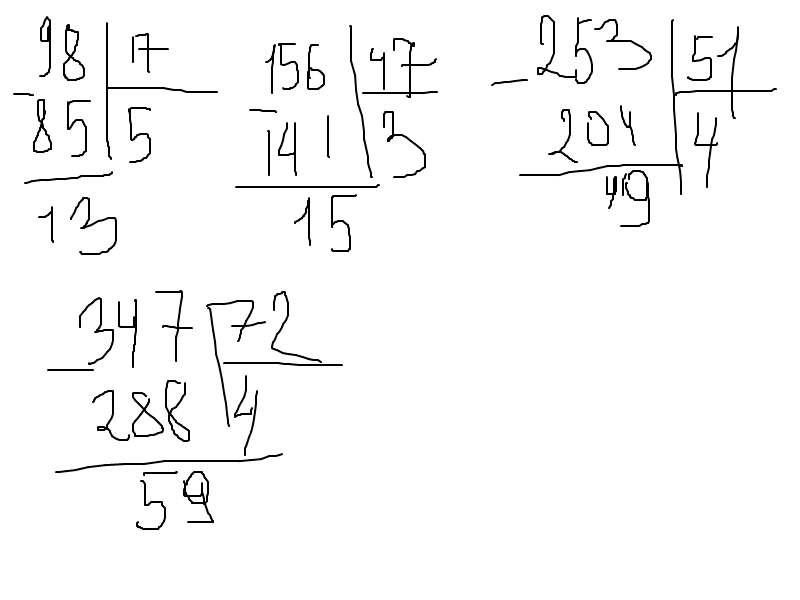 98 17 156 47 253 51
- 85 5 - 141 3 - 204 4
13 15 49
347 72
- 288 4
59